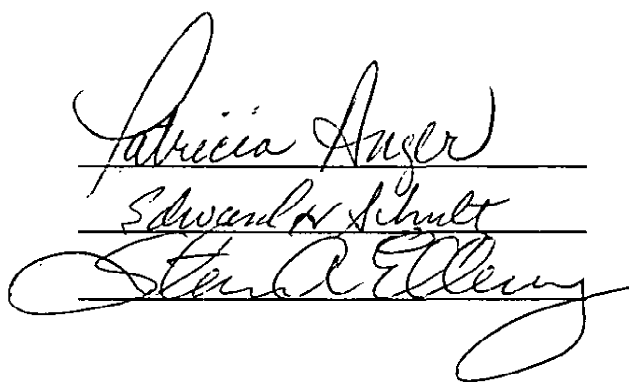 Patricia Anger
Edward H Schult
Steven A Ellemy